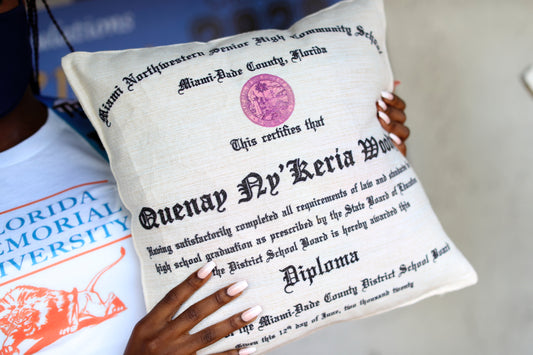 Miami Northwestern Senior High Community School
Miami-Dade County, Florida
This certifies that
Quenay Ny'Keria
Having satisfactorily completed all requirements of law and
high school graduation as prescribed by the State Board of
the District School Board is hereby awarded this
Diploma
the Miami-Dade County District School Board
Given this 12th day of June, two thousand twenty
FLORIDA
MEMORIAL
UNIVERSITY